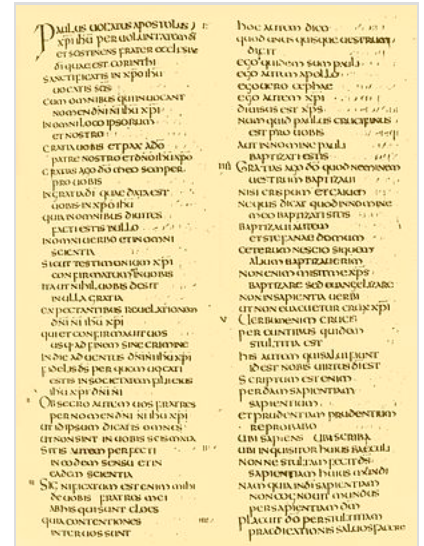 Paulus uocatus apostolus
xpi ihu per uoluntatem di
et sostinens frater
di quae est corinthi
sanctificatis in xpo ihu
uocatis scis
cum omnibus qui inuocant
nomen dni ni ihu xpi
in omni loco ipsorum
et nostro
gratia uobis et pax a do
patre nostro et dno ihu xpo
gratias ago do meo semper
pro uobis
in gratia di quae data est
uobis in xpo ihu
quia in omnibus diuites
facti estis in illo
in omni uerbo et in omni
scientia
sicut testimonium xpi
confirmatum in uobis
ita ut nihil uobis desit
in ulla gratia
expectantibus reuelationem
dni ni ihu xpi
qui et confirmauit uos
usq ad finem sine crimine
in die aduentus dni ni ihu xpi
fidelis ds per quem uocati
estis in societatem fili eius
ihu xpi dni ni
Obsecro autem uos fratres
per nomen dni ni ihu xpi
ut id ipsum dicatis omnes
ut non sint in uobis scismata
sitis autem perfecti
in eodem sensu et in
eadem scientia
Significatum est enim mihi
de uobis fratres mei
ab his qui sunt cloes
quia contentiones
inter uos sunt
hoc autem dico
quod unus quisque uestrum
dicit
ego quidem sum pauli
ego autem apollo
ego uero cephae
ego autem xpi
diuisus est xps
numquid paulus crucifixus
est pro uobis
aut in nomine pauli
baptizati estis
Gratias ago do quod neminem
uestrum baptizaui
nisi crispum et gaium
ne quis dicat quod in nomine
meo baptizati sitis
baptizaui autem
et stefanae domum
ceterum nescio si quem
alium baptizauerim
non enim misit me xps
baptizare sed euangelizare
non in sapientia uerbi
ut non euacuetur crux xpi
Uerbum enim crucis
pereuntibus quidem
stultitia est
his autem qui salui fiunt
id est nobis uirtus di est
scriptum est enim
perdam sapientiam
sapientium
et prudentiam prudentium
reprobabo
ubi sapiens ubi scriba
ubi inquisitor huius saeculi
nonne stultam fecit ds
sapientiam huius mundi
nam quia in di sapientiam
non cognouit mundus
per sapientiam dm
placuit do per stultitiam
praedicationis saluos facere